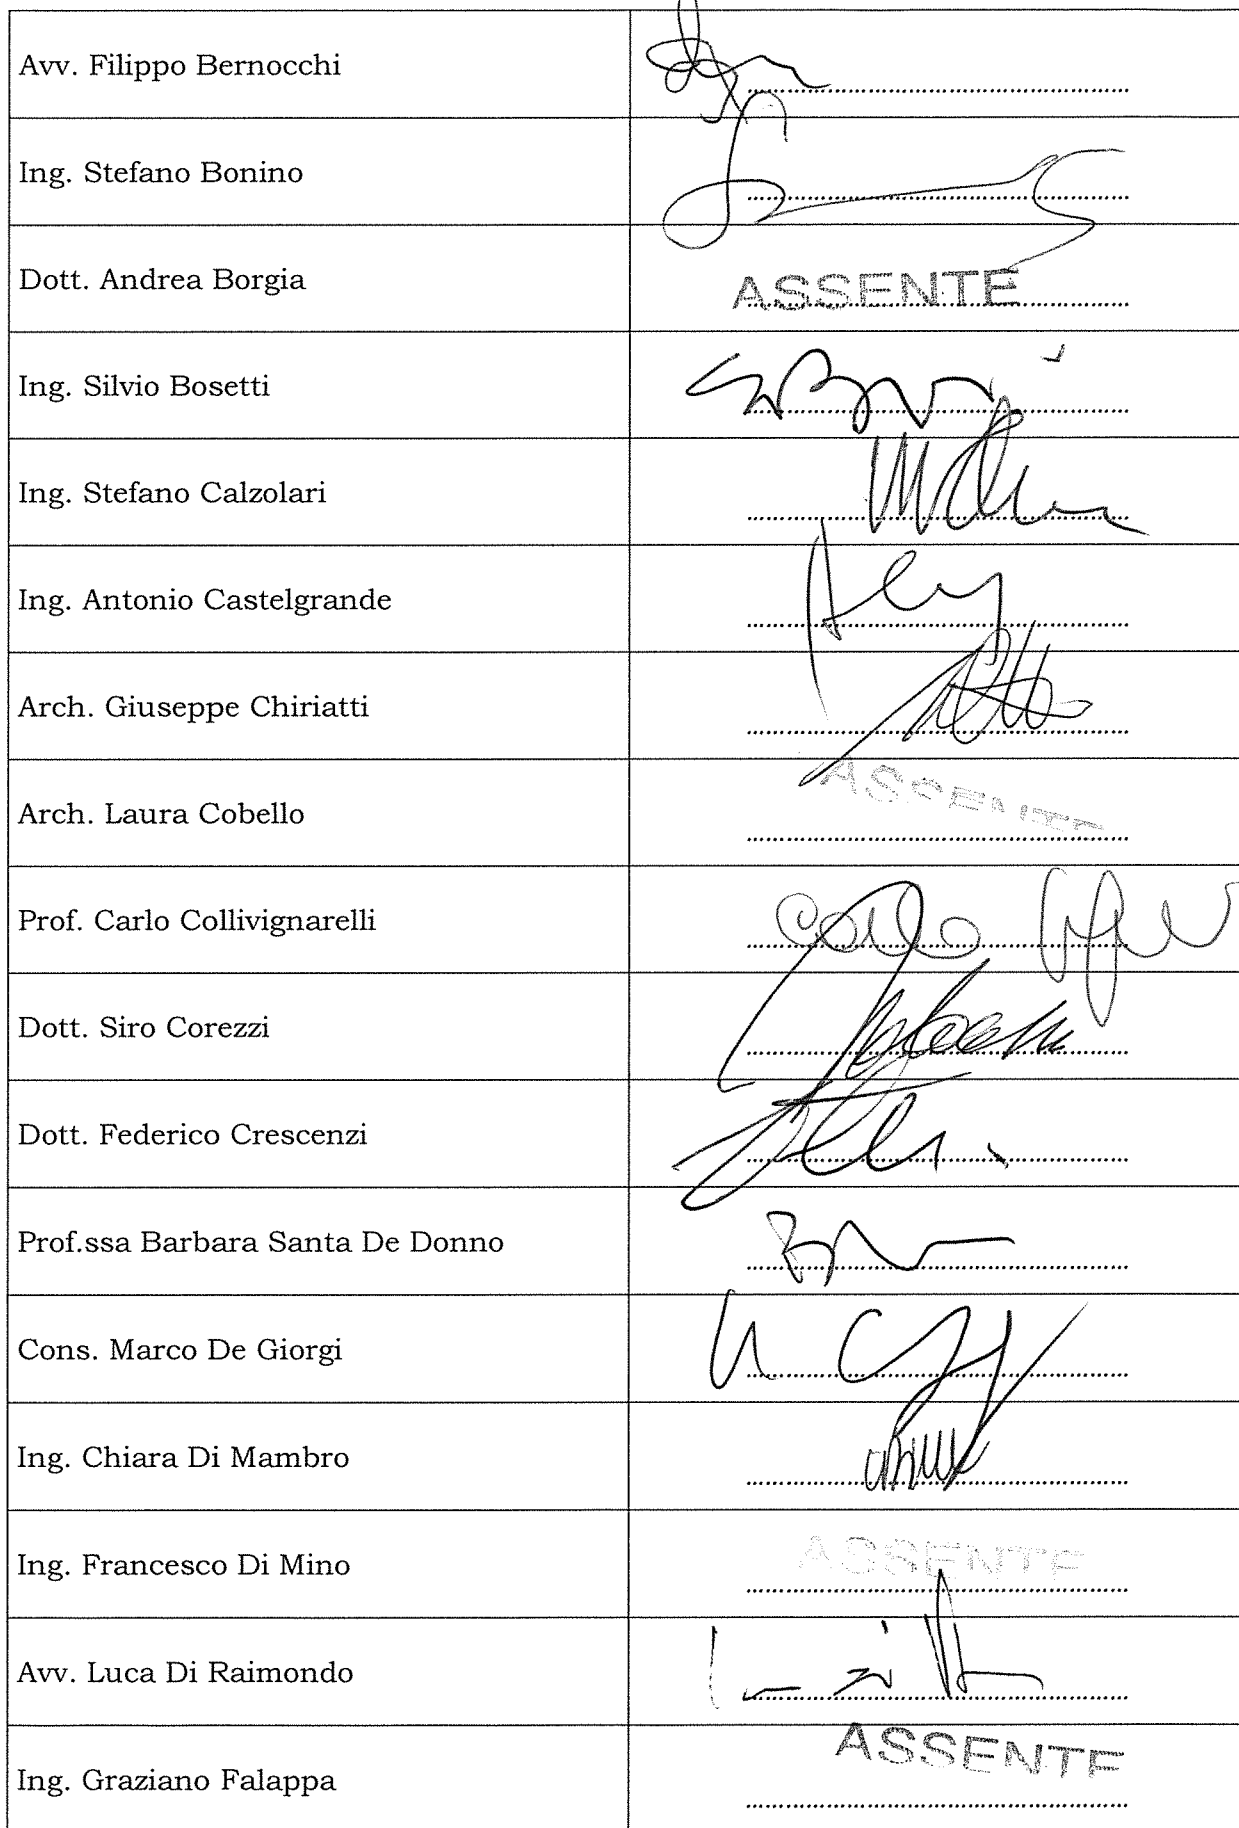 Avv. Filippo Bernocchi
Ing. Stefano Bonino
Dott. Andrea Borgia ASSENTE
Ing. Silvio Bosetti
Ing. Stefano Calzolari
Ing. Antonio Castelgrande
Arch. Giuseppe Chiriatti
Arch. Laura Cobello ASSENTE
Prof. Carlo Collivignarelli Carlo
Dott. Siro Corezzi
Dott. Federico Crescenzi
Prof.ssa Barbara Santa De Donno
Cons. Marco De Giorgi
Ing. Chiara Di Mambro
Ing. Francesco Di Mino ASSENTE
Avv. Luca Di Raimondo
Ing. Graziano Falappa ASSENTE